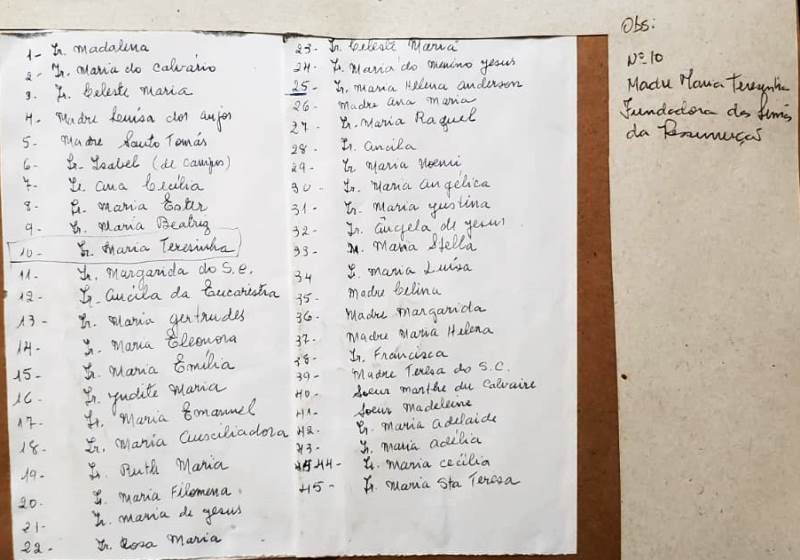 1- Ir. Madalena
2- Ir. Maria do Calvário
3. Ir. Celeste Maria
4- Madre Luísa dos Anjos
5- Madre Santo Tomás
6- Ir. Isabel (de Campos)
7- Ir. Ana Cecília
8- Ir. Maria Ester
9- Ir. Maria Beatriz
10- Ir. Maria Teresinha
11- Ir. Margarida do S.C.
12- Ir. Ancila da Eucaristia
13- Ir. Maria Gertrudes
14- Ir. Maria Eleonora
15- Ir. Maria Emília
16- Ir. Judite Maria
17- Ir. Maria Emanuel
18- Ir. Maria Auxciliadora
19- Ir. Ruth Maria
20- Ir. Maria Filomena
21- Ir. Maria de Jesus
22- Ir. Rosa Maria
23- Ir. Celeste Maria
24- Ir. Maria do Menino Jesus
25- Ir. Maria Helena Anderson
26- Madre Ana Maria
27- Ir. Maria Raquel
28- Ir. Ancila
29- Ir Maria Noemi
30- Ir. Maria Angélica
31- Ir. Maria Justina
32- Ir. Ângela de Jesus
33- M. Maria Stella
34 Ir. Maria Luísa
35- Madre Celina
36- Madre Margarida
37- Madre Maria Helena
38- Ir. Francisca
39- Madre Teresa do S.C.
40- Soeur Marthe du Calvaire
41- Soeur Madeleine
42- Ir. Maria Adelaide
43- Ir. Maria Adélia
44- Ir. Maria Cecília
45- Ir. Maria Sta Teresa
Obs:
Nº 10
Madre Maria Teresinha
Fundadora das Irmãs
da